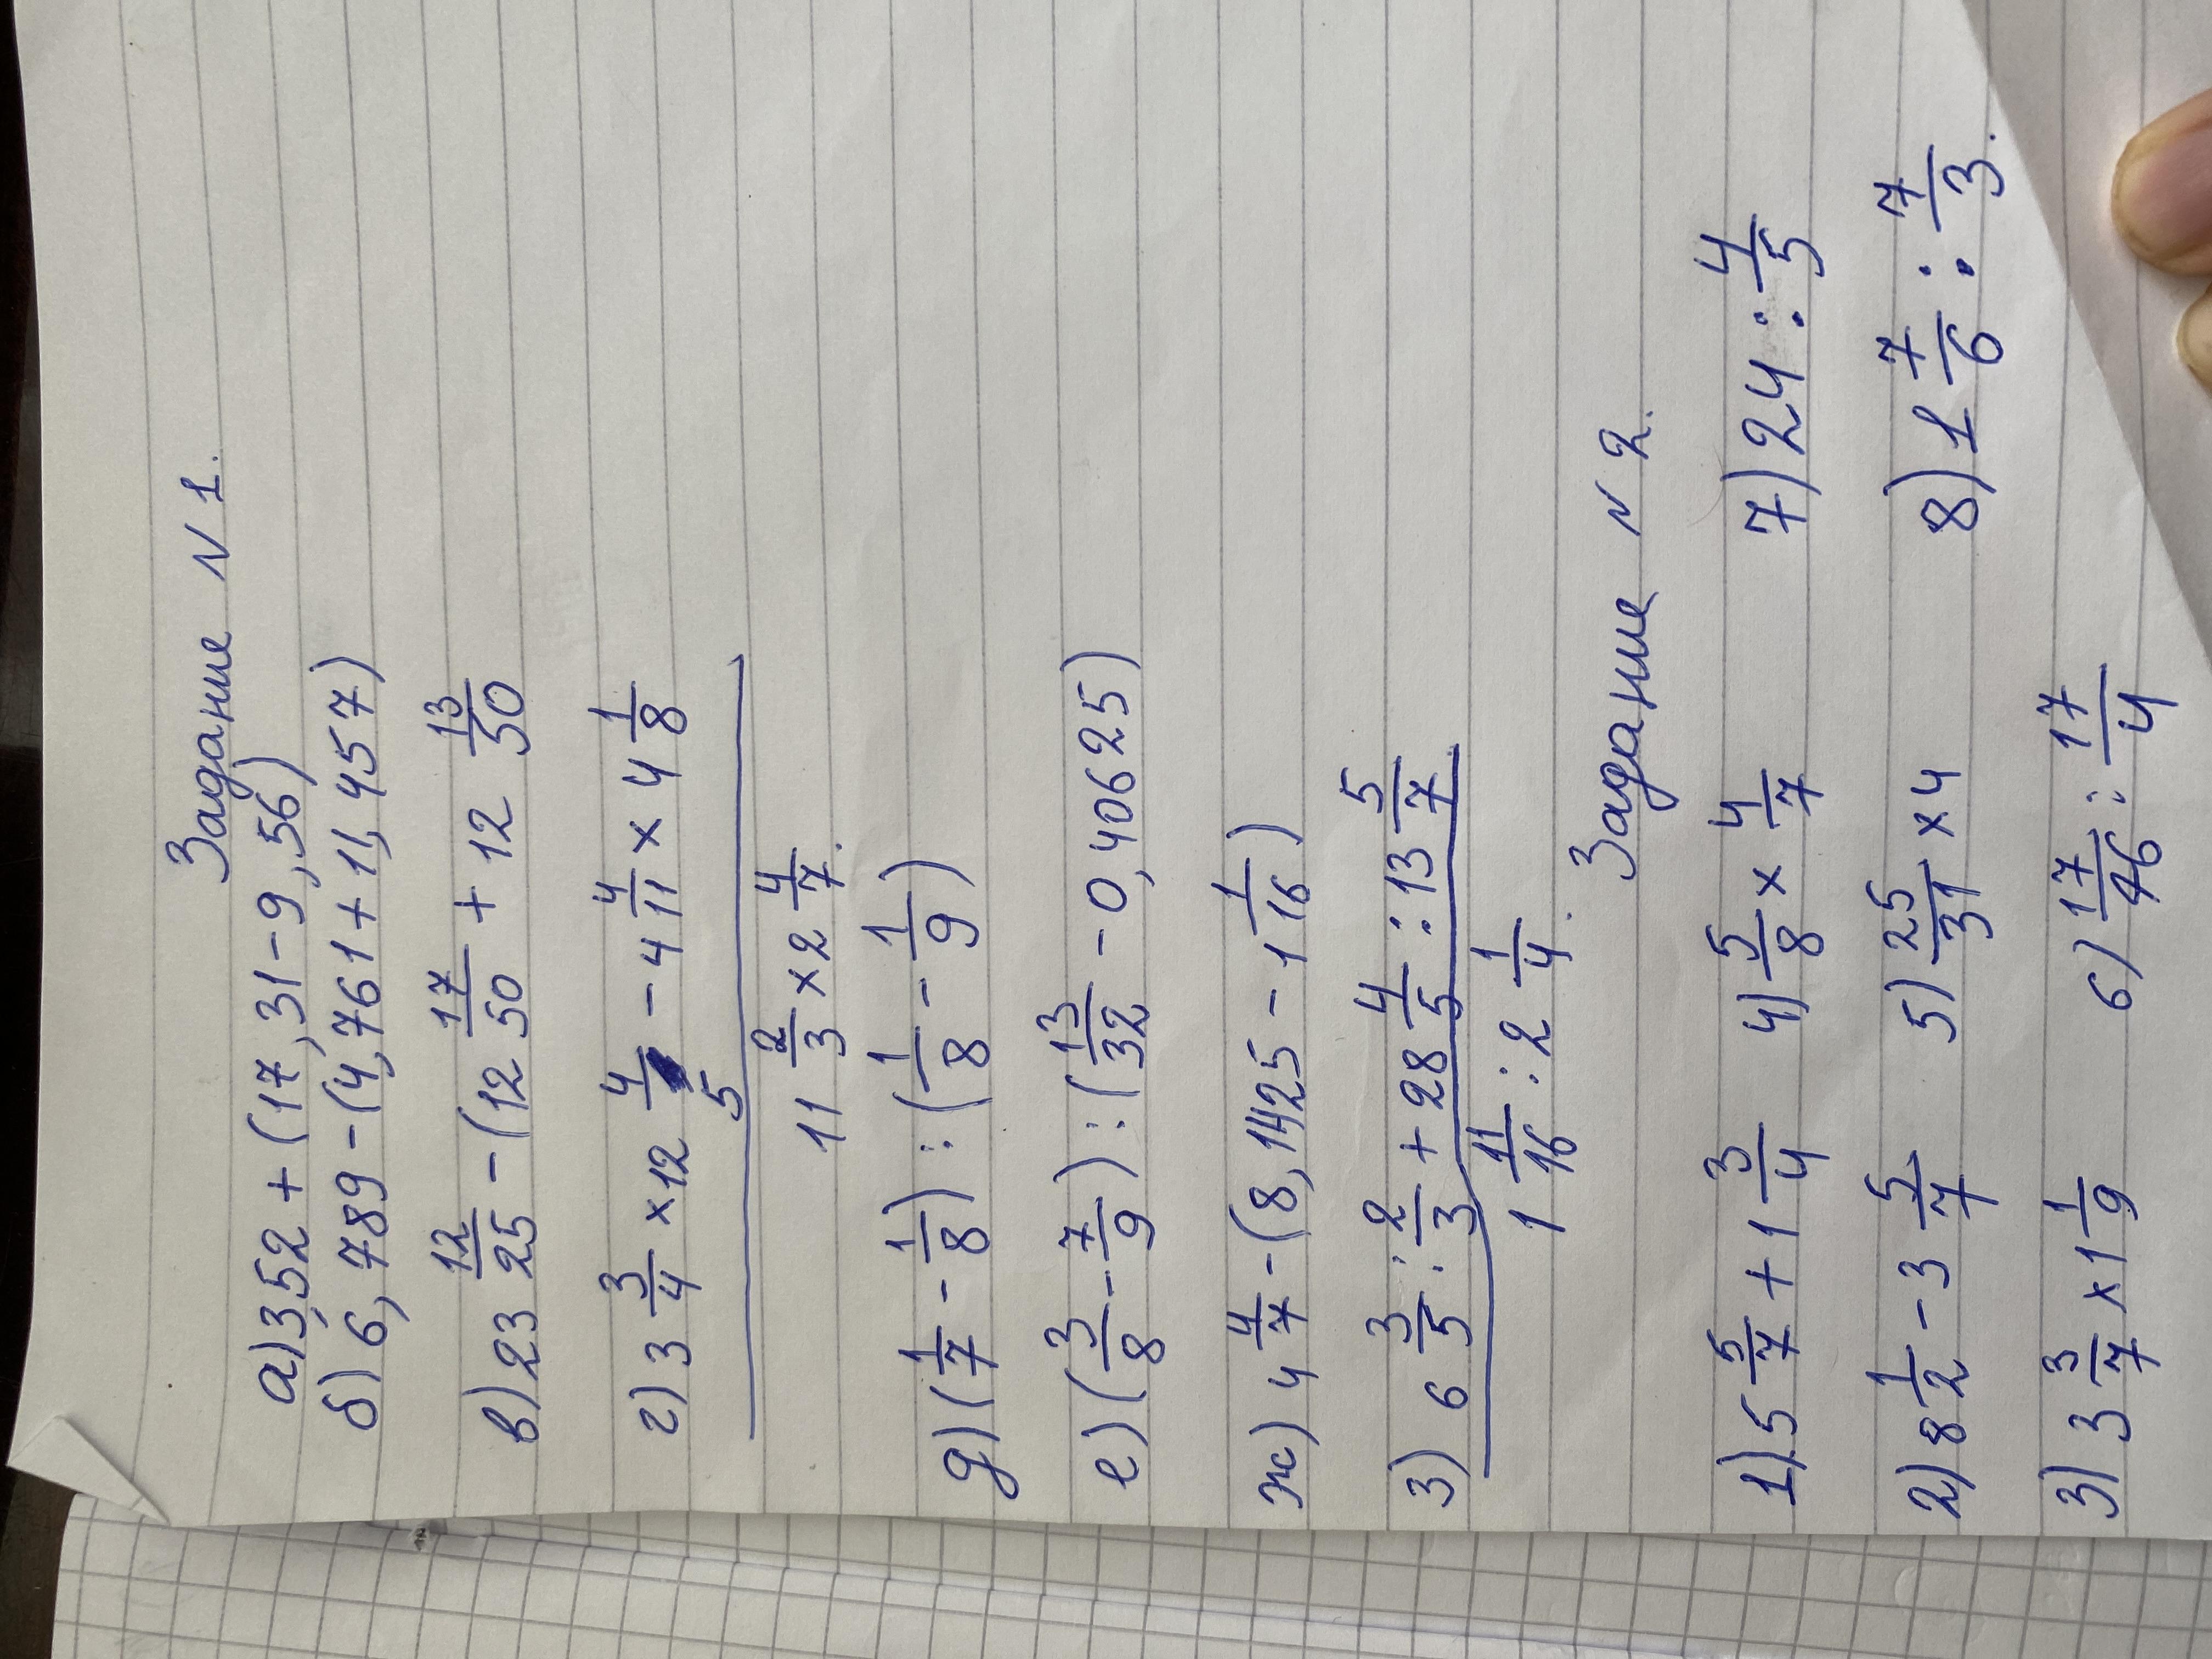 Задание N 1.
а) 3,52 + (17,31 - 9,56)
б) 6,789 - (4,761 + 11,4457)
в) 23 12/25 - (12 17/50 + 12 13/50
г) 3 3/4 × 12 4/5 - 4 4/11 × 4 1/8
11 2/3 × 2 4/7.
д) (1/7 - 1/8) : (1/8 - 1/9)
е) (3/8 - 7/9) : (13/32 - 0,40625)
ж) 4 4/7 - (8,1425 - 1 1/16)
з) 6 3/5 : 2/3 + 28 4/5 : 13 5/7
1 11/16 : 2 1/4.
Задание N 2.
1) 5 5/7 + 1 3/4 4) 5/8 × 4/7 7) 24 : 4/5
2) 8 1/2 - 3 5/7 5) 25/31 × 4 8) 1 7/6 : 7/3.
3) 3 3/7 × 1 1/9 6) 17/46 : 17/4